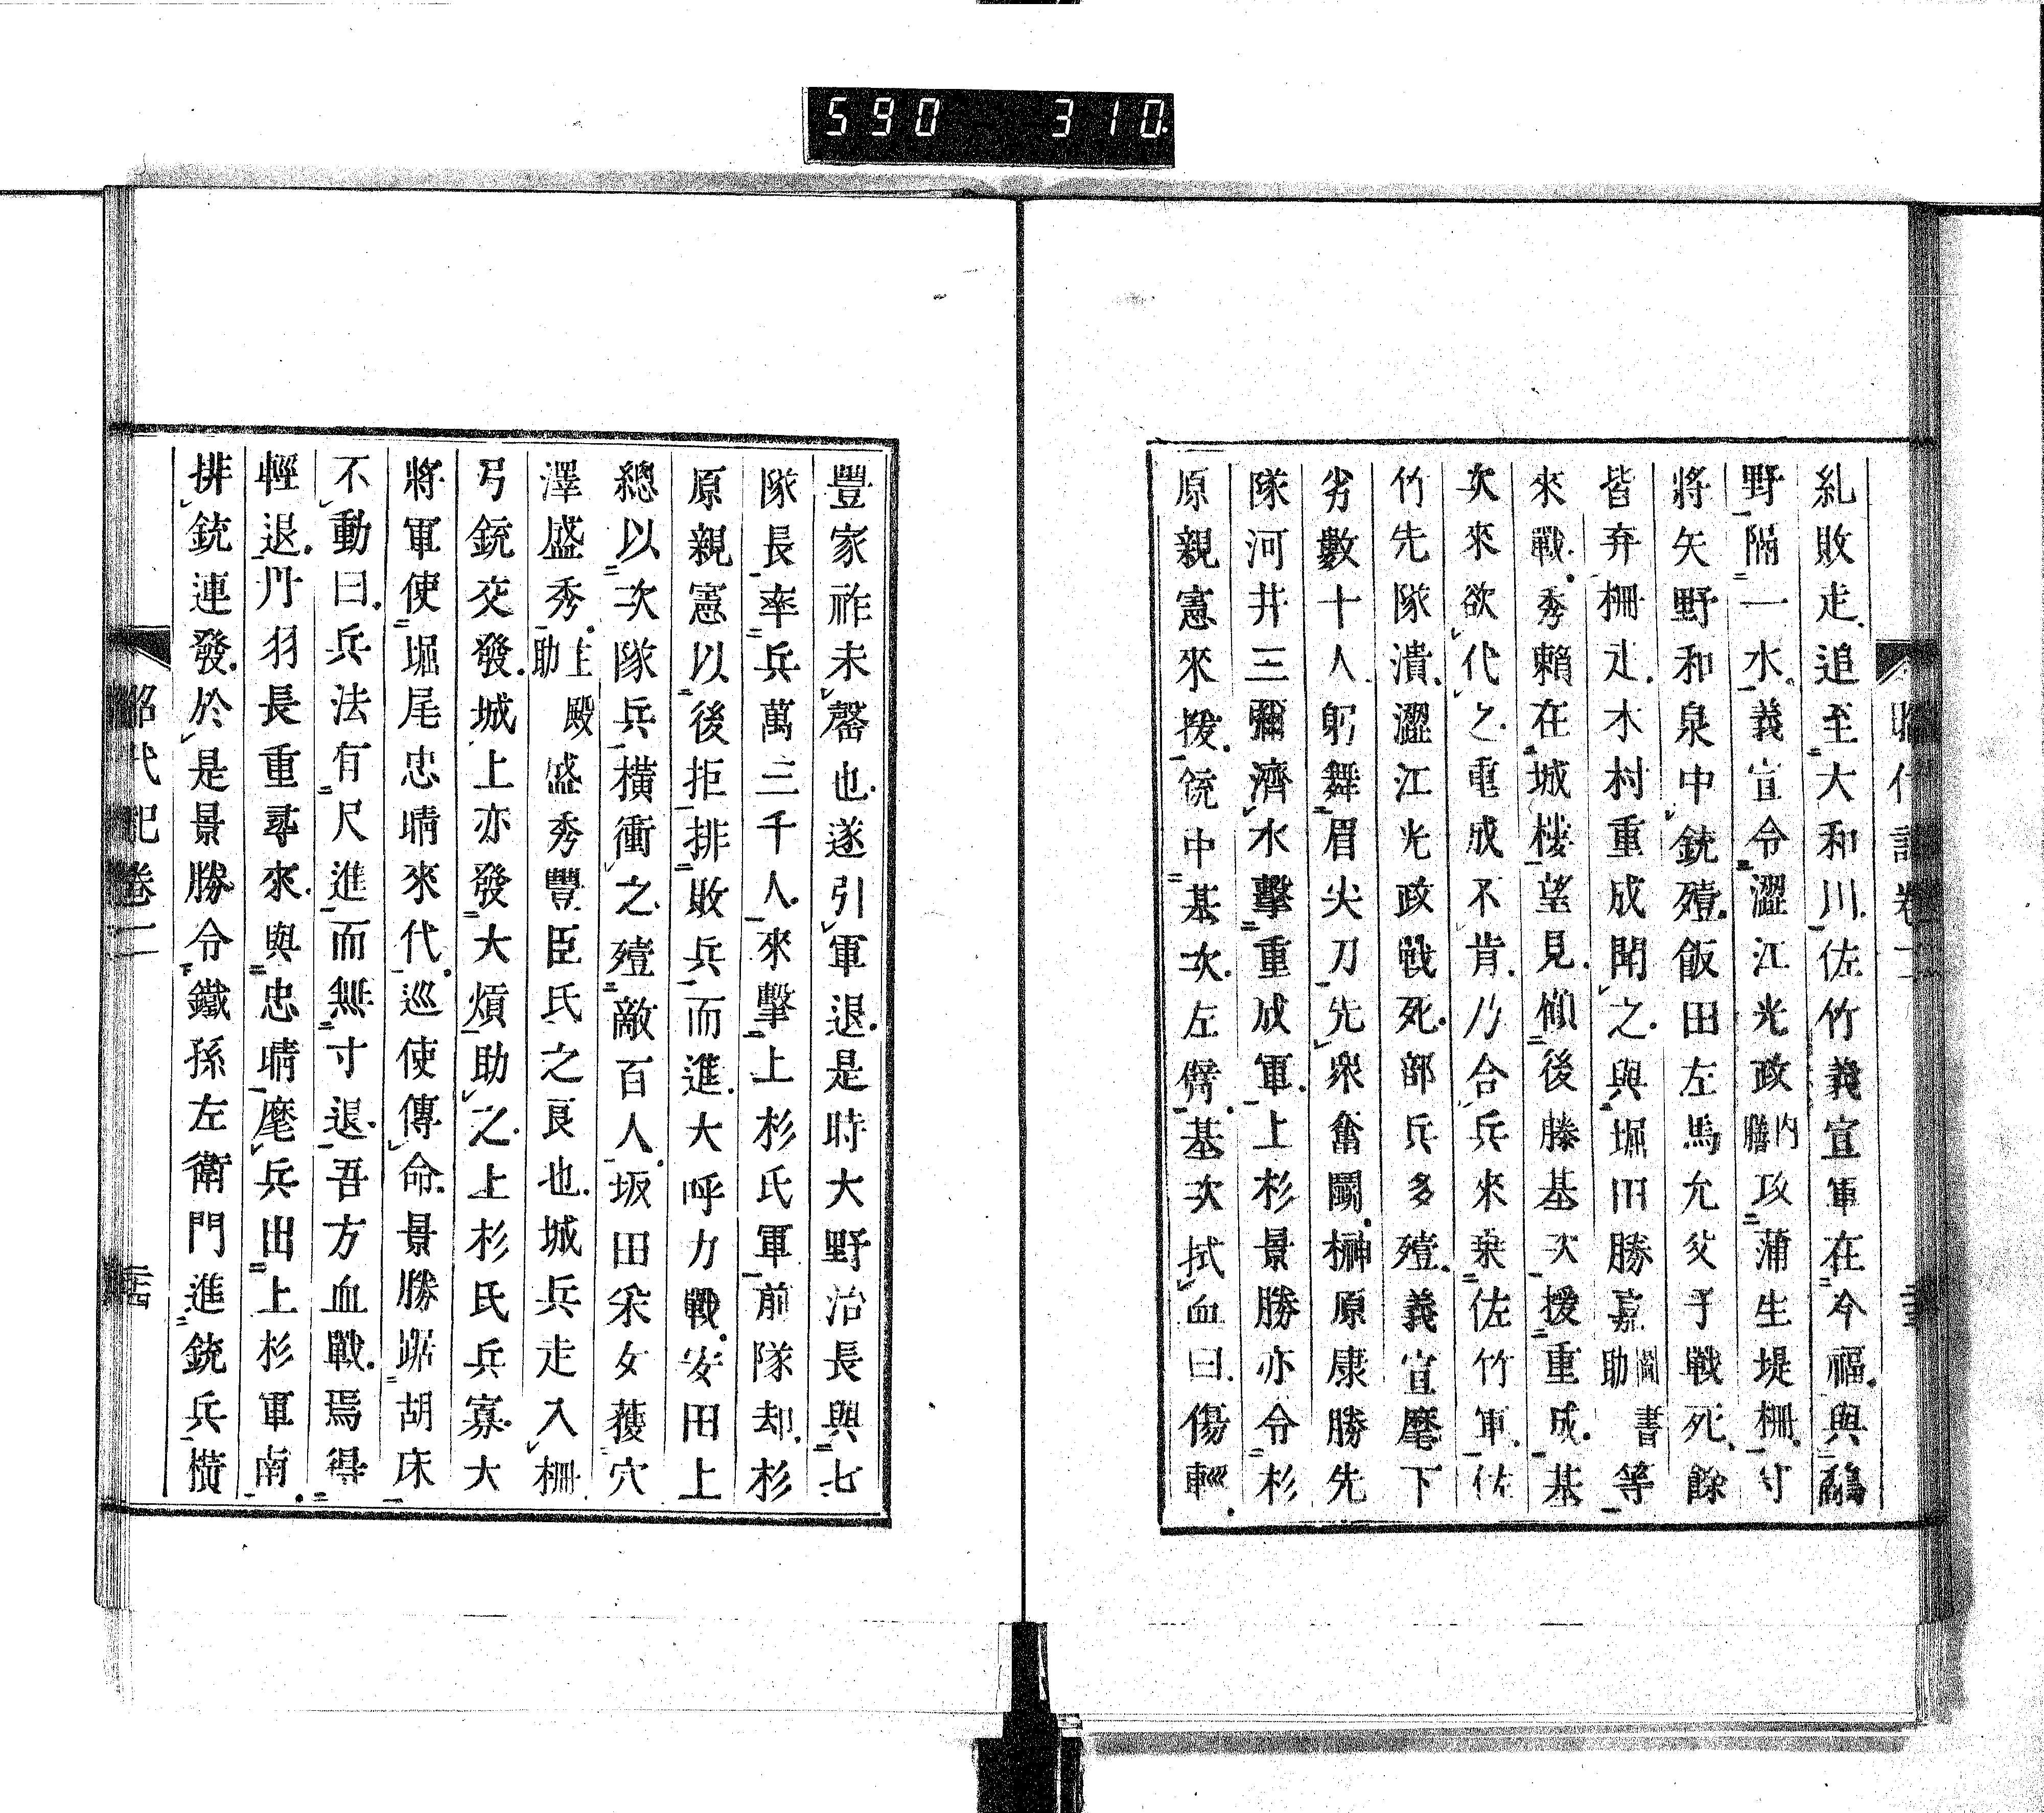 590 310
昭代記卷二
糺敗走追至大和川佐竹義宣軍在今福與鷸
野隔一水義宣令澀江光政内膳攻蒲生堤柵寸
將矢野和泉中銃殪飯田左馬允父子戦死餘
皆弃柵走木村重成聞之與堀田勝嘉圖書助等
來戰秀賴在城楼望見傾後藤基次援重成基
次來欲代之重成不肯乃合兵來乗佐竹軍佐
竹先隊潰澀江光政戦死部兵多殪義宣麾下
劣數十人躬舞眉尖刀先衆奮鬭榊原康勝先
隊河井三彌濟水擊重成軍上杉景勝亦令杉
原親憲來援銃中基次左臂基次拭血曰傷輕
豐家祚未罄也遂引軍退是時大野治長與七
隊長率兵萬三千人來擊上杉氏軍前隊却杉
原親憲以後拒排敗兵而進大呼力戰安田上
總以次隊兵橫衝之殪敵百人坂田采女獲穴
澤盛秀主殿助盛秀豐臣氏之良也城兵走入柵
弓銃交發城上亦發大煩助之上杉氏兵寡大
將軍使堀尾忠晴來代巡使傳命景勝踞胡床
不動曰兵法有尺進而無寸退吾方血戰焉得
輕退丹羽長重尋來與忠晴麾兵出上杉軍南
排銃連發於是景勝令鐵孫左衛門進銃兵橫
昭代記卷二